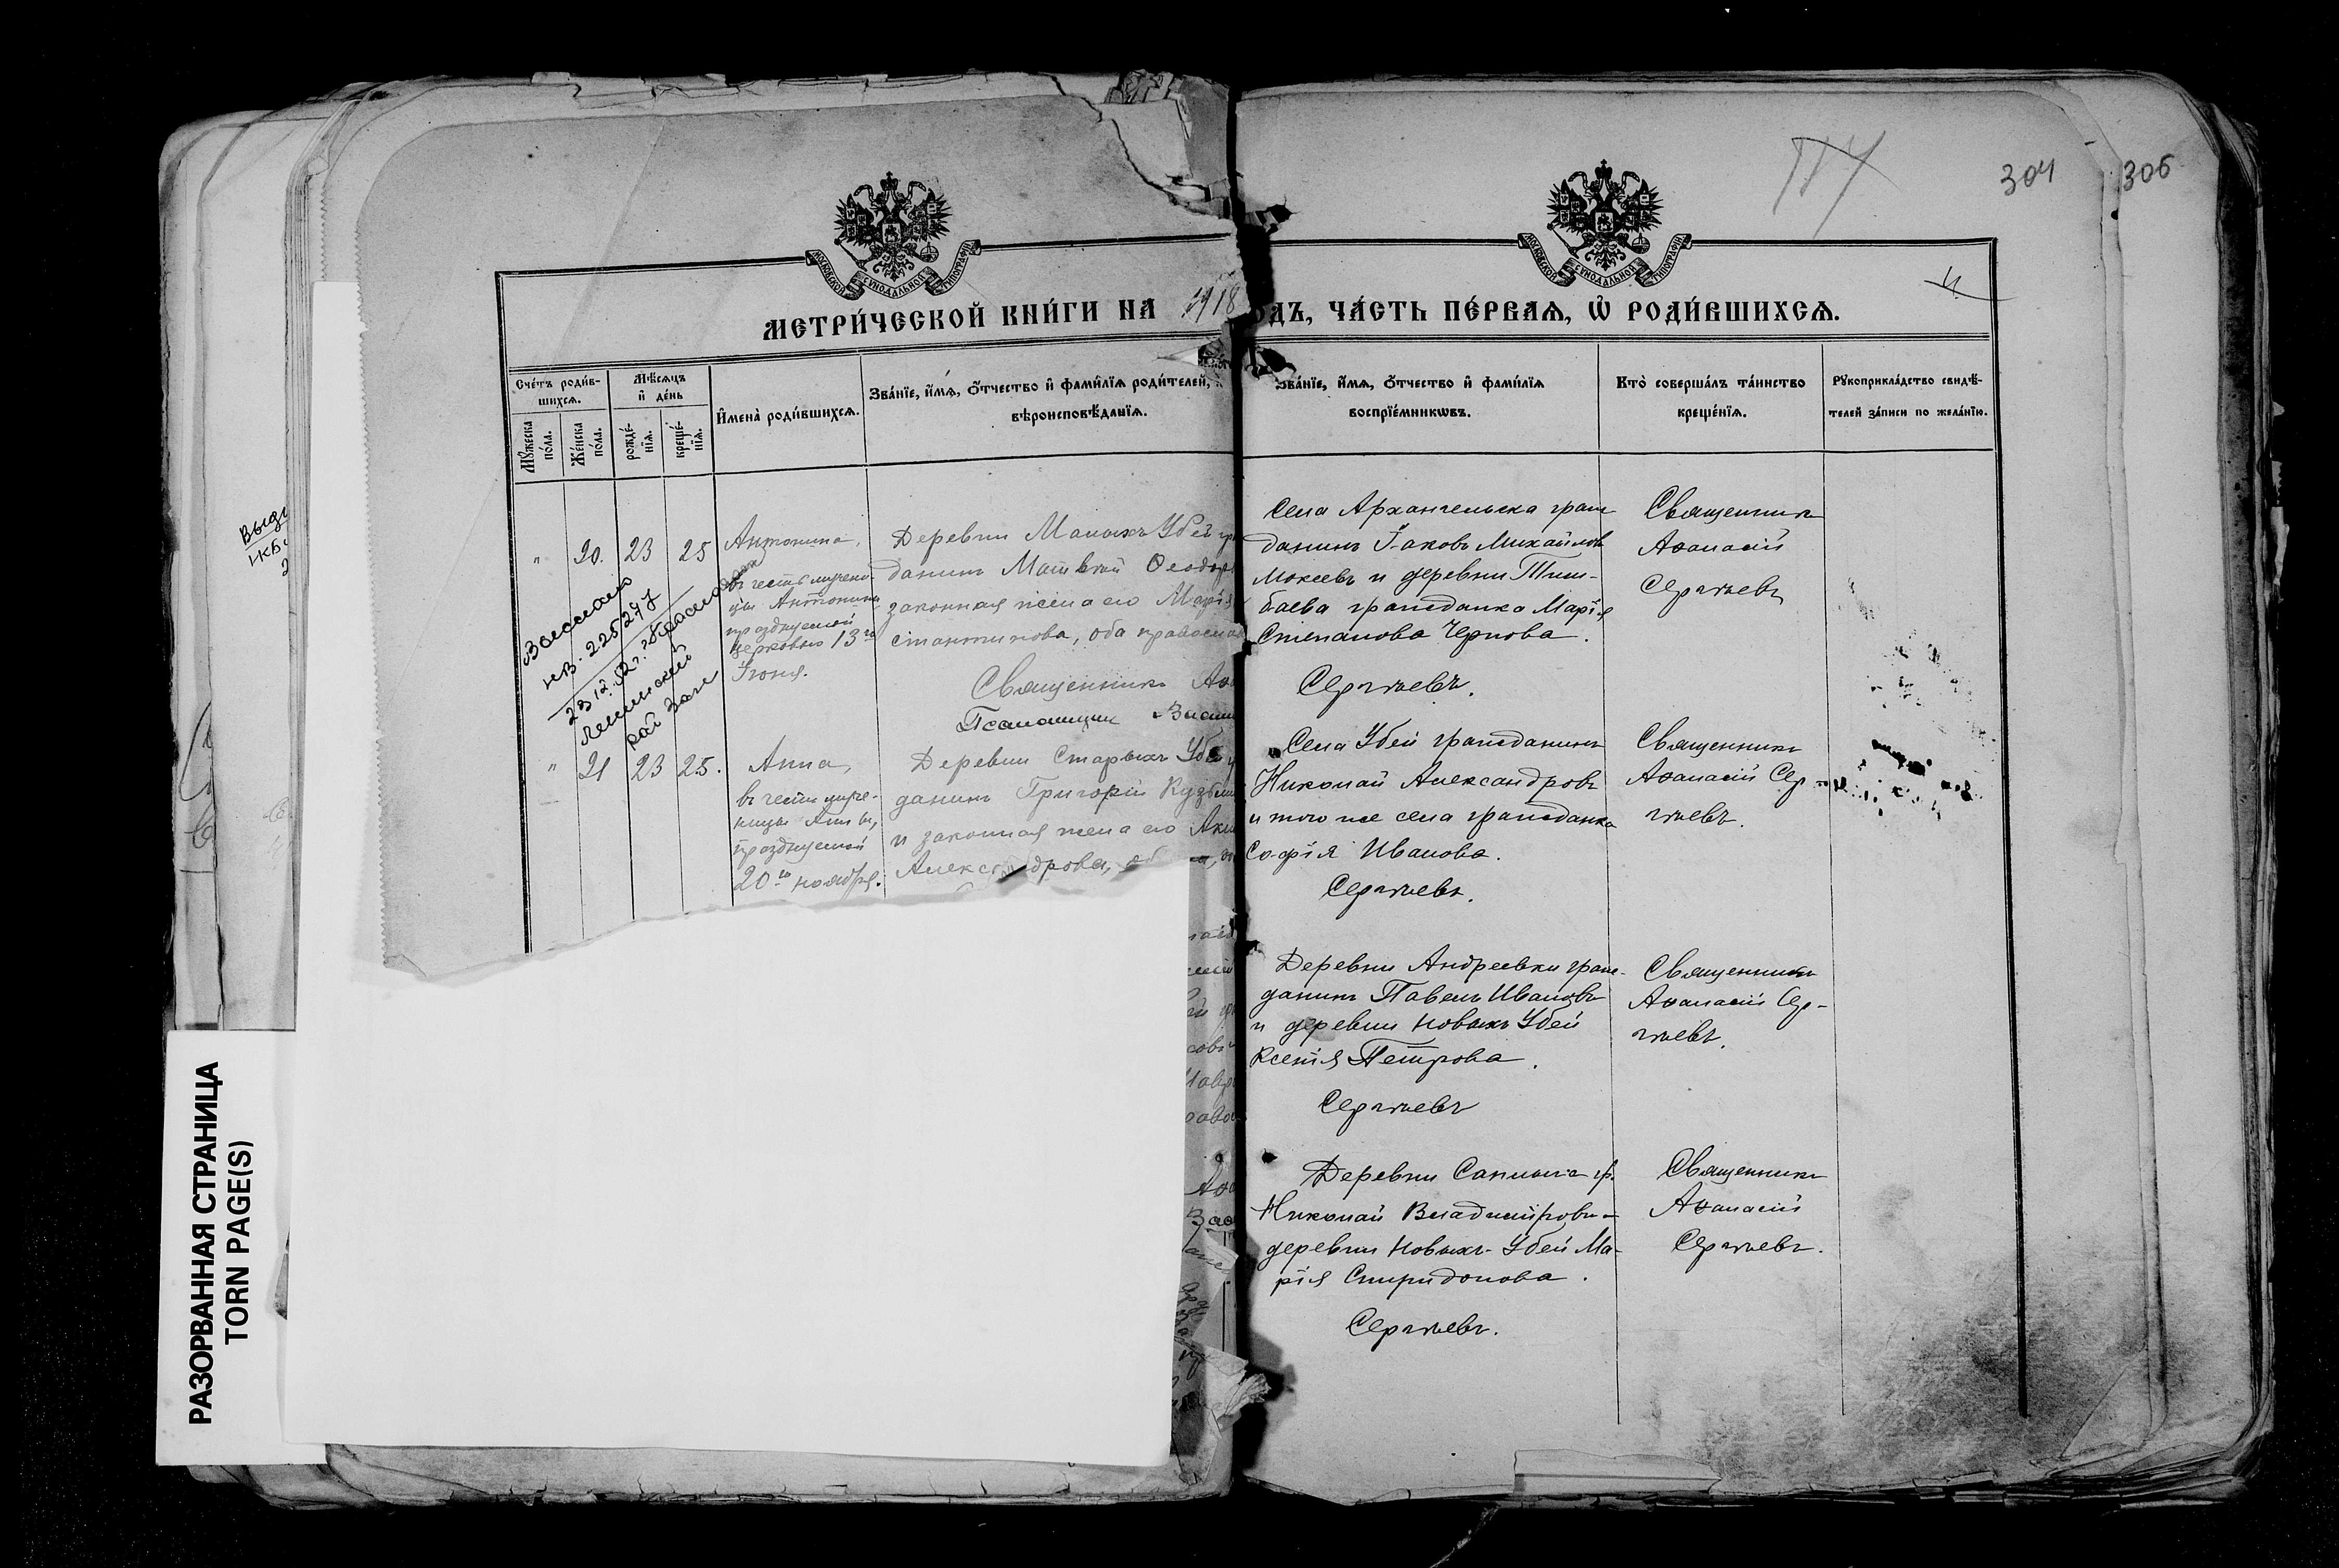 304
306
МОСКОВСКОЙ СѴНОДАЛЬНОЙ ТИПОГРАФІИ
МОСКОВСКОЙ СѴНОДАЛЬНОЙ ТИПОГРАФІИ
МЕТРИ́ЧЕСКОЙ КНИ́ГИ НА 1918
ОДЪ, ЧА́СТЬ ПЕ́РВАѦ, Ѡ҆ РОДИ́ВШИХСѦ.
Сче́тъ роди́в-
шихсѧ.
Мꙋ́жеска по́ла.
Же́нска по́ла.
Мѣ́сѧцъ и҆ де́нь
рожде́-нїѧ.
креще́-нїѧ.
И҆мена̀ роди́вшихсѧ.
Зва́нїе, и҆́мѧ, ѻ҆́тчество и҆ фами́лїѧ роди́телей,
вѣроисповѣ́данїѧ.
Зва́нїе, и҆́мѧ, ѻ҆́тчество и҆ фами́лїѧ
воспрїе́мникѡвъ.
Кто̀ соверша́лъ та́инство
креще́нїѧ.
Рꙋкоприкла́дство свидѣ́-
телей за́писи по жела́нїю.
" 20. 23 25
Антонина,
въ честь мучени-
цы Антонины
празднуемой
церковью 13го
Іюня.
Деревни Малыхъ Убей гр
данинъ Матвей Ѳеодор
законная жена его Марія
стантинова, оба правосла
Священникъ Аѳ
Псаломщикъ Васи
Села Архангельска граж
данинъ Іаковъ Михайловъ
Мокеевъ и деревни Тим-
баева гражданка Марія
Степанова Чернова.
Сергѣевъ.
Священникъ
Аѳанасій
Сергѣевъ
" 21 23 25.
Анна,
въ честь муче-
ницы Анны,
празднуемой
20го ноября.
Деревни Старыхъ Убе
данинъ Григорій Кузьми
и законная жена его Аки
Александрова,
Села Убей гражданинъ
Николай Александровъ
и того же села гражданка
Софія Иванова.
Сергѣевъ.
Священникъ
Аѳанасій Сер-
гѣевъ.
Деревни Андреевки граж-
данинъ Павелъ Ивановъ
и деревни Новыхъ Убей
Ксенія Петрова.
Сергѣевъ
Священникъ
Аѳанасій Сер-
гѣевъ.
Деревни Саплыка гр.
Николай Владиміровъ
деревни Новыхъ Убей Ма-
рія Спиридонова.
Сергѣевъ.
Священникъ
Аѳанасій
Сергѣевъ.
РАЗОРВАННАЯ СТРАНИЦА
TORN PAGE(S)